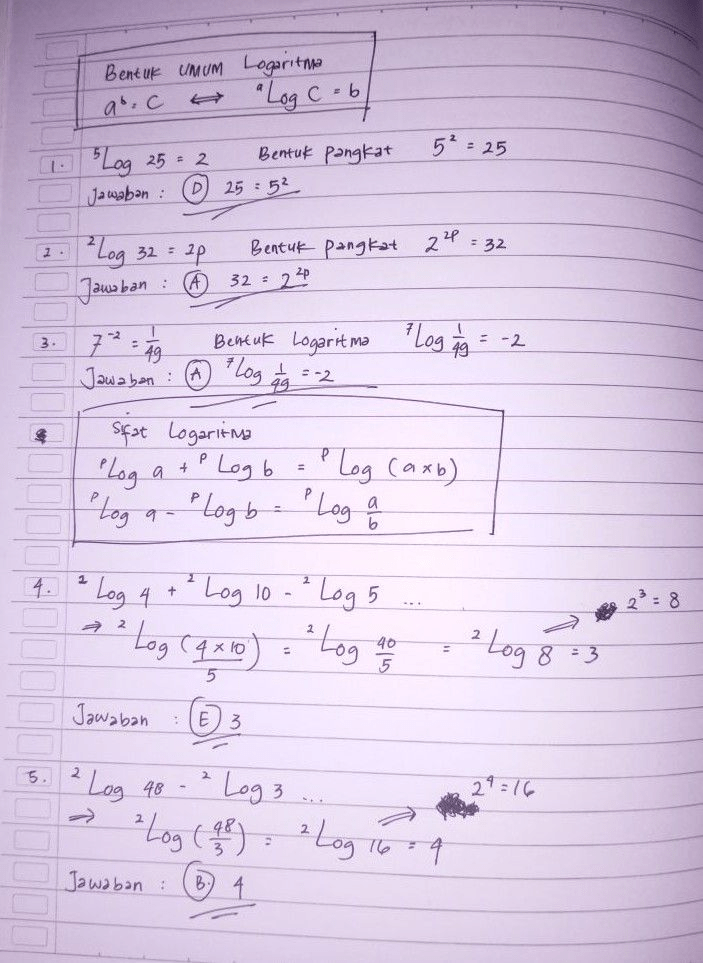 Bentuk UMUM Logaritma
a^b = C ⇔ ᵃLog C = b
1. ⁵Log 25 = 2 Bentuk pangkat 5² = 25
Jawaban : (D) 25 = 5²
2. ²Log 32 = 2p Bentuk pangkat 2^2p = 32
Jawaban : (A) 32 = 2^2p
3. 7⁻² = 1/49 Bentuk Logaritma ⁷Log 1/49 = -2
Jawaban : (A) ⁷Log 1/49 = -2
Sifat Logaritma
ᵖLog a + ᵖLog b = ᵖLog (a×b)
ᵖLog a - ᵖLog b = ᵖLog a/b
4. ²Log 4 + ²Log 10 - ²Log 5 ...
⇒ ²Log (4×10/5) = ²Log 40/5 = ²Log 8 = 3 ⇒ 2³ = 8
Jawaban : (E) 3
5. ²Log 48 - ²Log 3 ...
⇒ ²Log (48/3) = ²Log 16 = 4 ⇒ 2⁴ = 16
Jawaban : (B.) 4